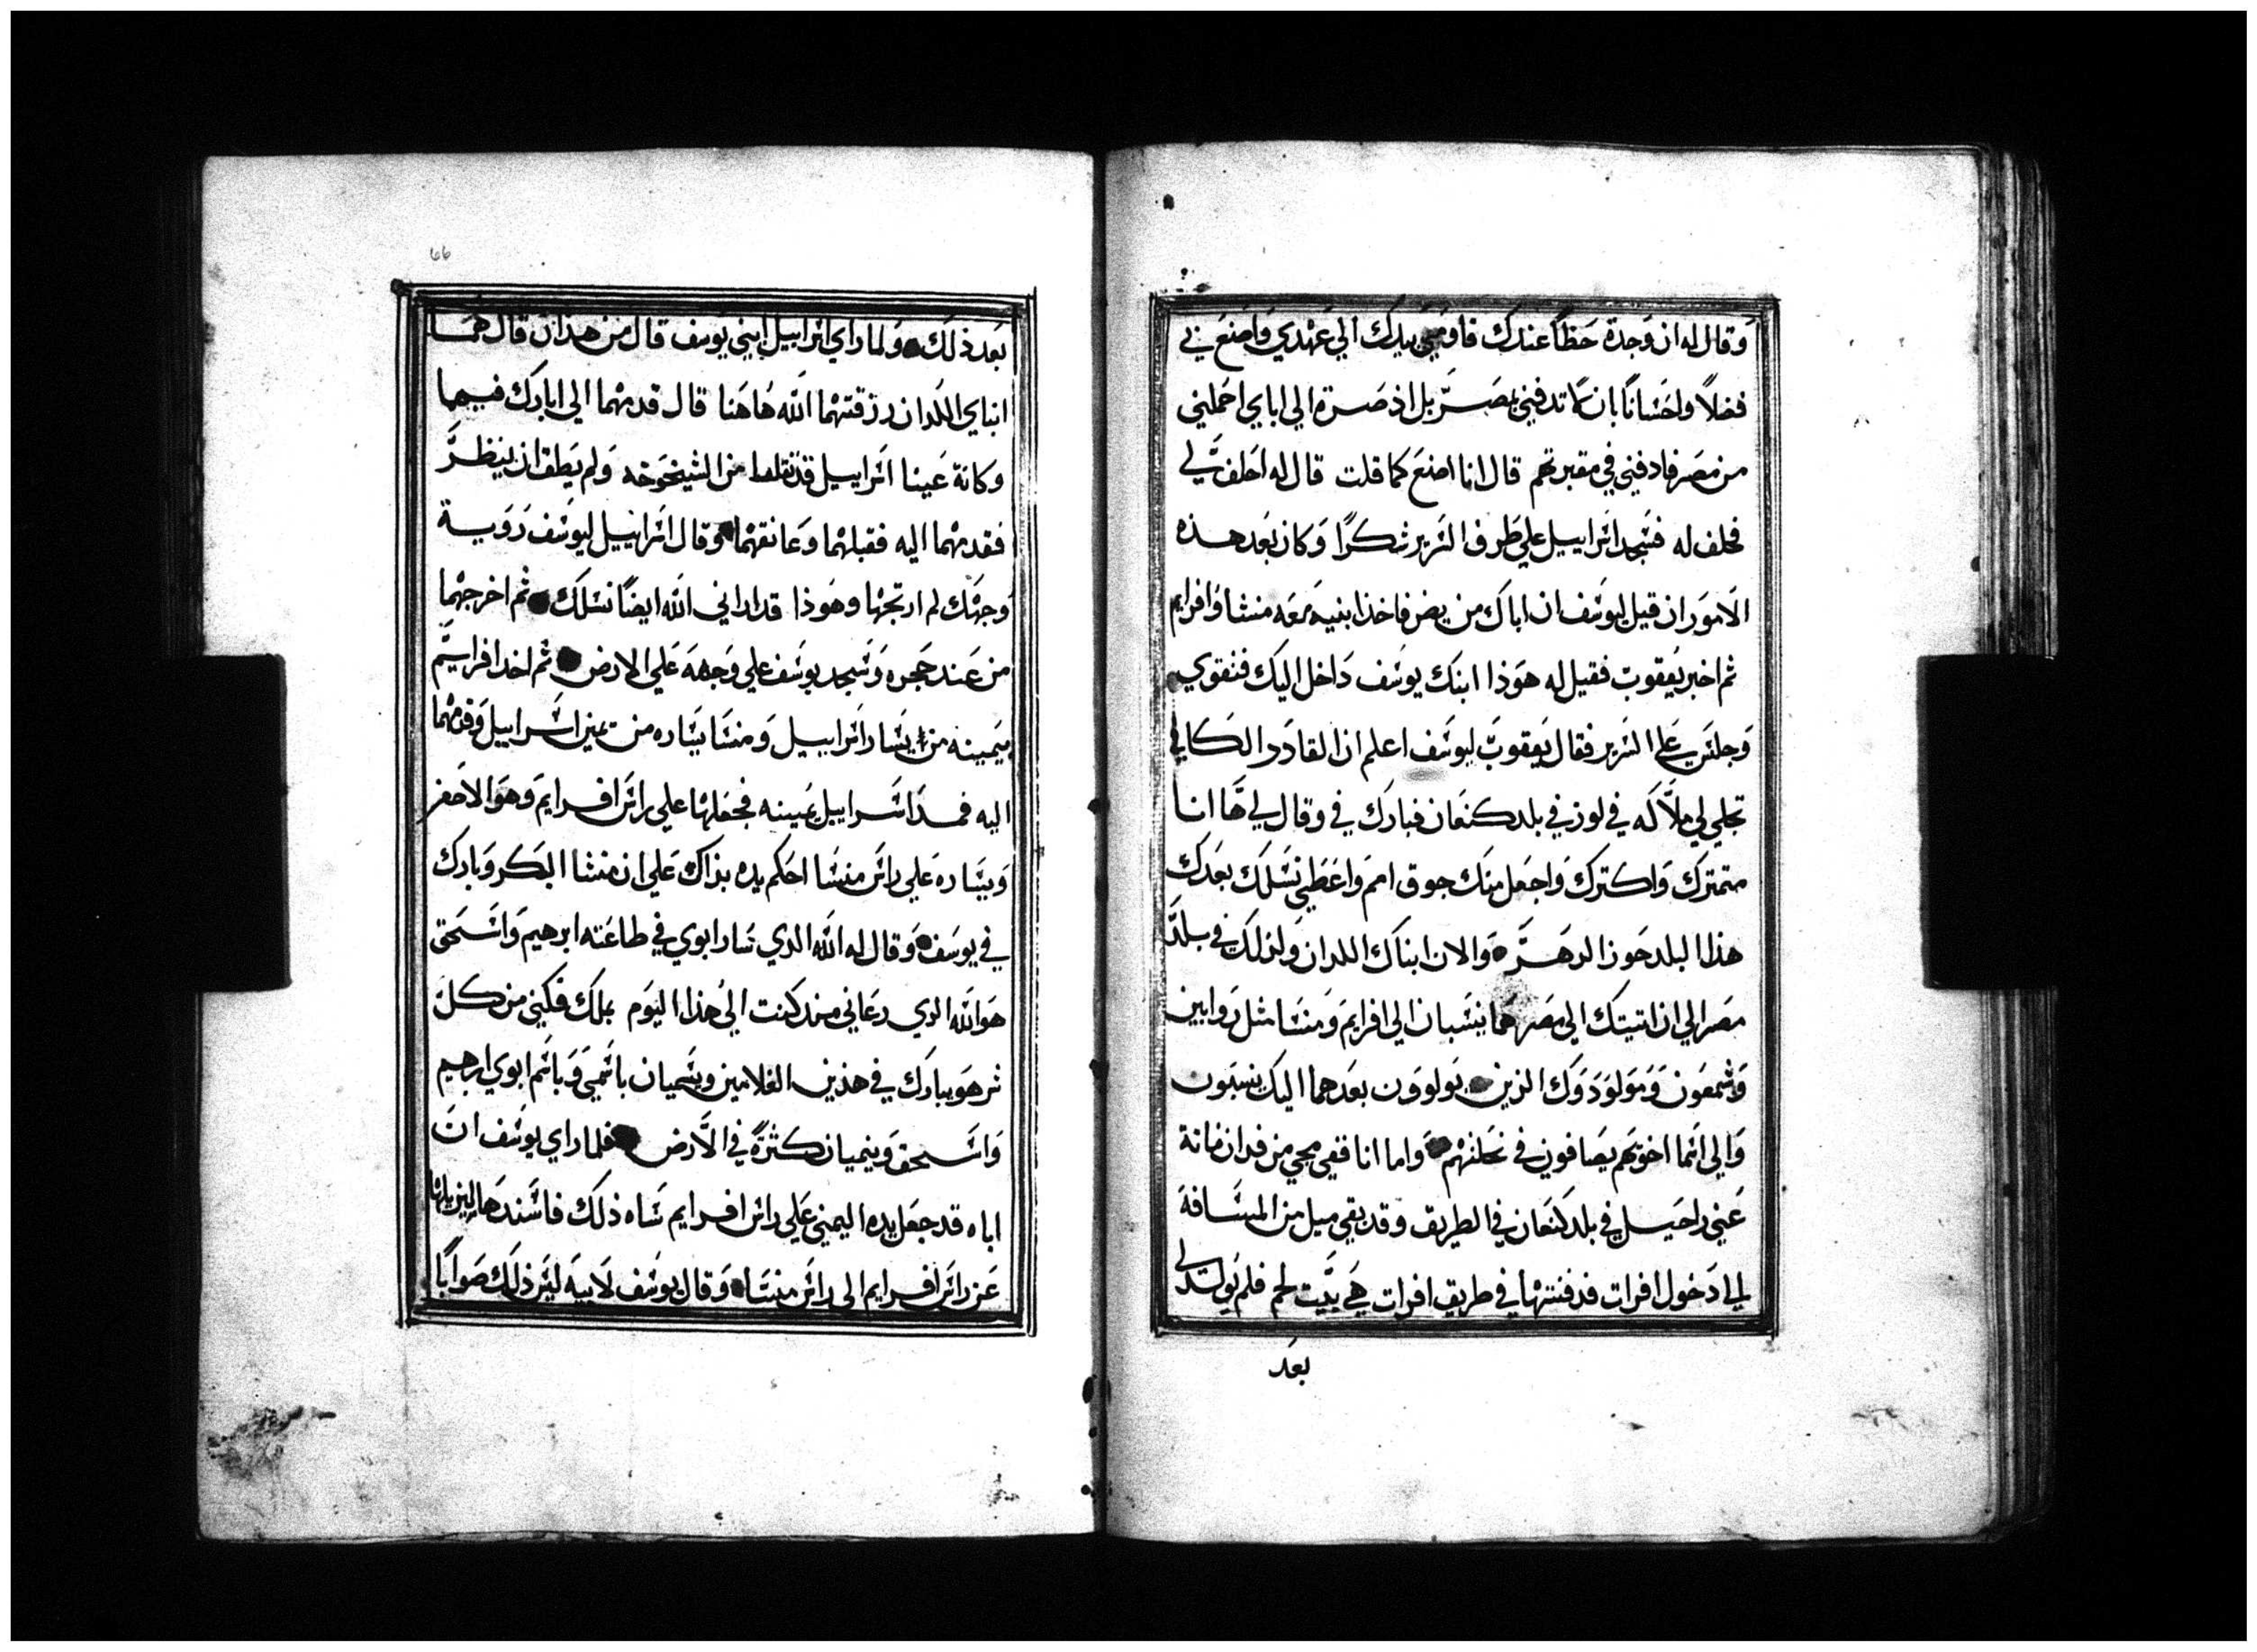 وقال له ان وجدة حظاً عندك فاومي بيدك الي عهدي واصنع بي
فضلاً واحساناً بان لا تدفني بمصر بل اذ صرة الي اباي احملني
من مصر فادفني في مقبرتهم قال انا اصنع كما قلت قال له احلف لي
فحلف له فسجد اسراييل علي طرف السرير شكرًا وكان بعد هذه
الامور ان قيل ليوسف ان اباك مريض فاخذ ابنيه معه منشا وافرايم
ثم اخبر يعقوب فقيل له هوذا ابنك يوسف داخل اليك فتقوي
وجلس علي السرير فقال يعقوب ليوسف اعلم ان القادر الكافي
تجلي لي ملاكه في لوز في بلد كنعان فبارك في وقال لي ها انا
متمترك واكترك واجعل منك جوق امم واعطي نسلك بعدك
هذا البلد حوز الدهر والان ابناك اللدان ولد لك في بلد
مصر الي ان اتيتك الي مصر هما ينسبان الي افرايم ومنشا مثل روابين
وشمعون ومولودوك الذين يولوون بعدهما اليك ينسبون
والي اسما اخوتهم يضافون في نحلتهم واما انا ففي مجي من فدان ماتة
عني راحيل في بلد كنعان في الطريق وقد بقي ميل من المسافة
الي دخول افرات فدفنتها في طريق افرات هي بيت لحم فلم يولد لي
بعد
٦٦
بعد ذلك ولما راي اسراييل ابني يوسف قال من هذان قال هما
ابناي اللدان رزقتهما الله هاهنا قال قدمهما الي ابارك فيهما
وكانة عينا اسراييل قد تقلتا من الشيخوخه ولم يطق ان ينظر
فقدمهما اليه فقبلهما وعانقهما وقال اسراييل ليوسف روية
وجهك لم ارتجها وهوذا قد اراني الله ايضًا نسلك ثم اخرجهما
من عند حجره وسجد يوسف علي وجهه علي الارض ثم اخد افرايم
بيمينه من يسار اسراييل ومنشا بيساره من يمين اسراييل وقدمهما
اليه فمد اسراييل يمينه فجعلها علي راس افرايم وهو الاصغر
ويساره علي راس منشا احكم يده بذاك علي ان منشا البكر وبارك
في يوسف وقال له الله الدي سار ابوي في طاعته ابرهيم واسحق
هو الله الدي رعاني مند كنت الي هذا اليوم بملك فكيني من كل
شر هو يبارك في هذين الغلامين ويسميان باسمي وباسم ابوي ابرهيم
واسحق وينميان كثرةً في الارض فلما راي يوسف ان
اباه قد جعل يده اليمني علي راس افرايم ساه ذلك فاسند ها ليزيلها
عن راس افرايم الي راس منشا وقال يوسف لابيه ليس ذلك صوابًا